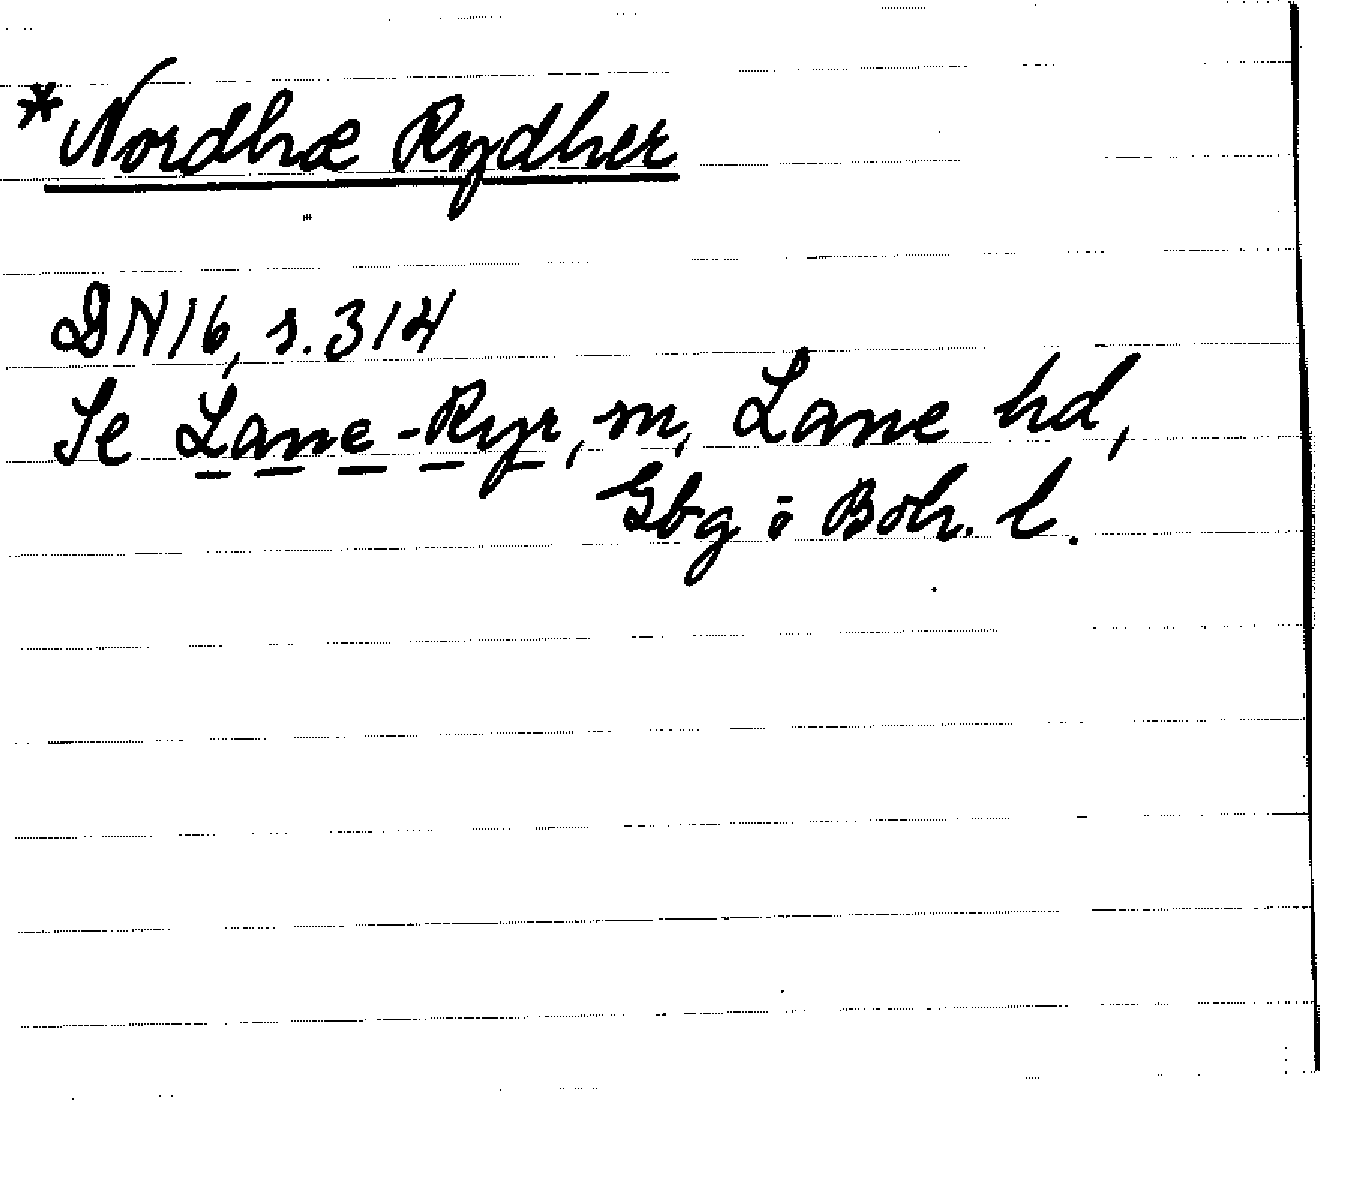 *Nordhræ Rydher
DN 16, s. 314
Se Lane-Ryr, sn, Lane hd,
Gbg o Boh. l.